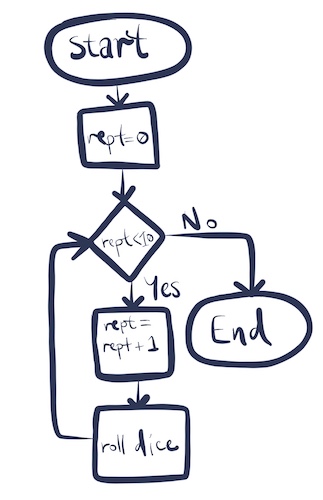 Start
rept=0
rept<10
No
Yes
rept=
rept+1
End
roll dice